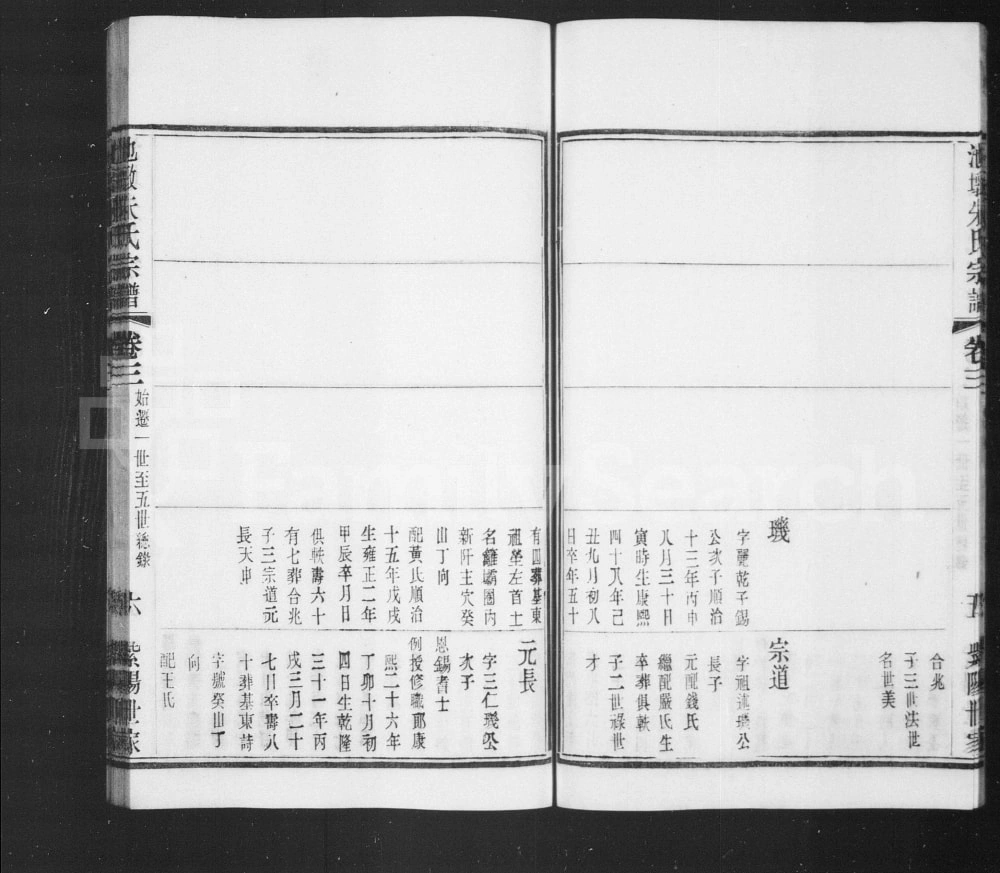 池墩朱氏宗譜
卷三
五
紫陽世家
合兆
子三世法世
名世美
璣
字麗乾子錫
公次子順治
十三年丙申
八月三十日
寅時生康熙
四十八年己
丑九月初八
日卒年五十
宗道
字祖述璣公
長子
元配錢氏
繼配嚴氏生
卒葬俱軼
子二世祿世
才
有四葬基東
祖塋左首土
名籬壩圈內
新阡主穴癸
山丁向
配黃氏順治
十五年戊戌
生雍正二年
甲辰卒月日
俱軼壽六十
有七葬合兆
子三宗道元
長天申
元長
字三仁璣公
次子
恩錫耆士
例授修職郎康
熙二十六年
丁卯十月初
四日生乾隆
三十一年丙
戌三月二十
七日卒壽八
十葬基東詩
字號癸山丁
向
配王氏
池墩朱氏宗譜
卷三
始遷一世至五世總錄
六
紫陽世家
FamilySearch